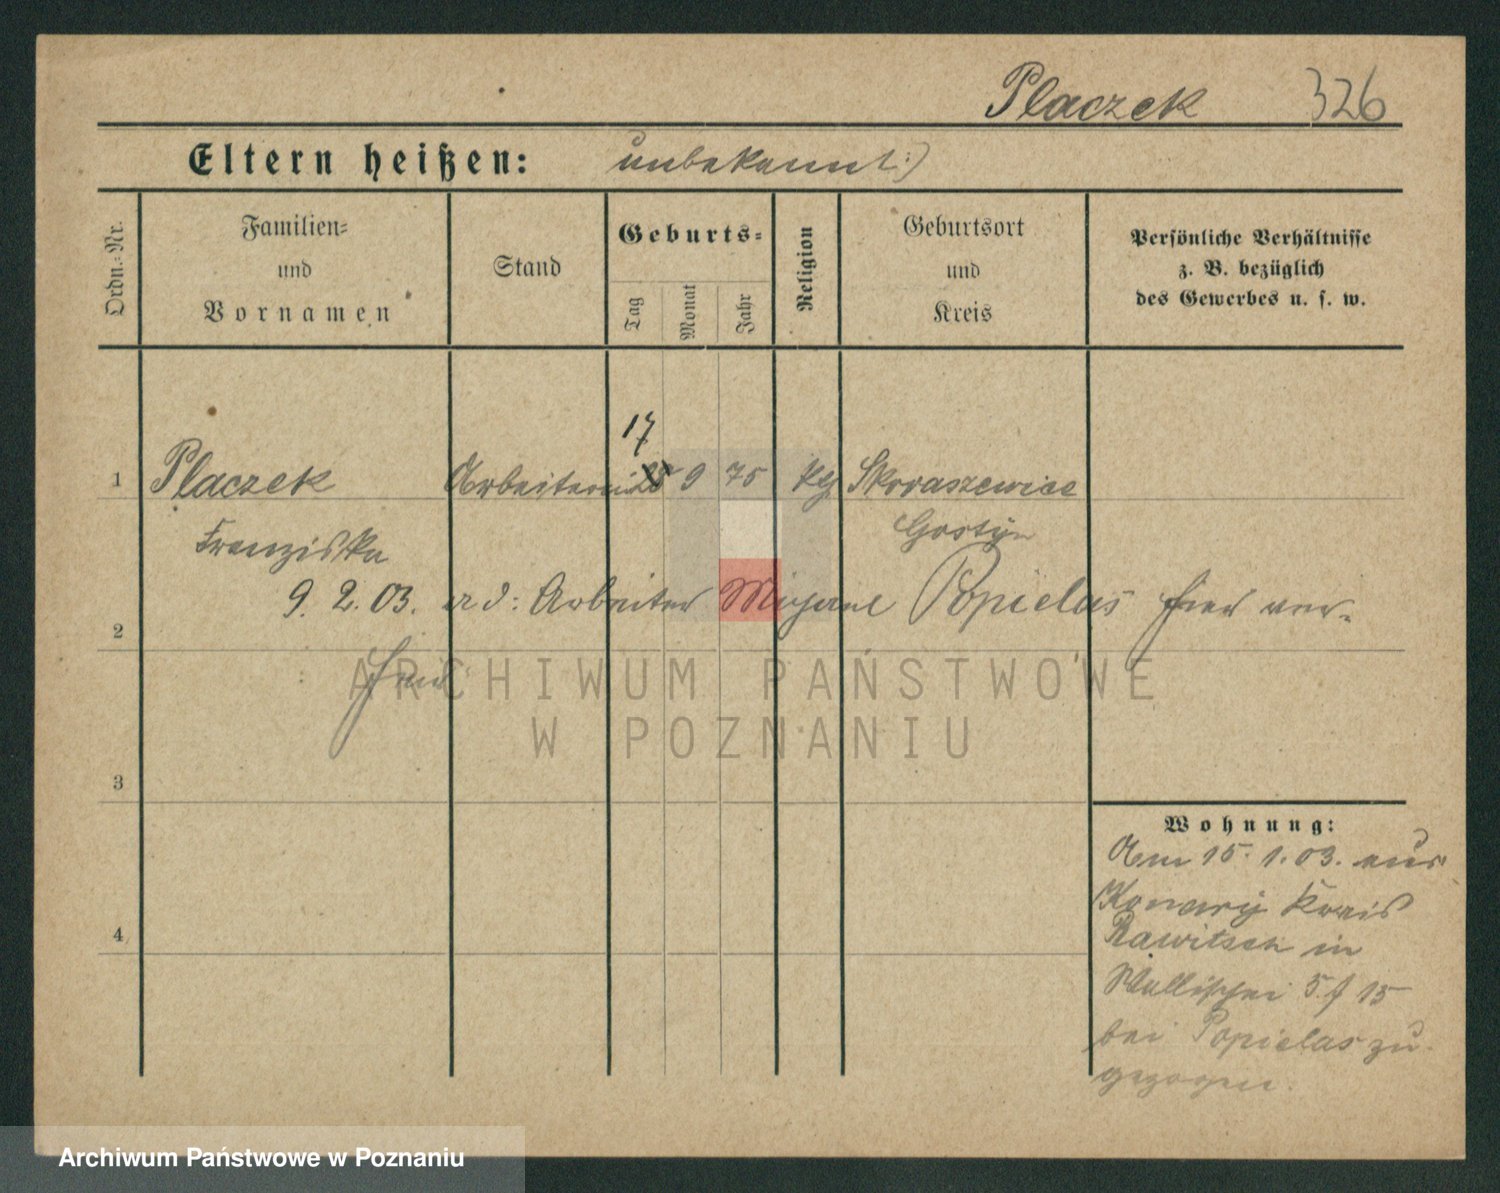 Placzek 326
Eltern heißen: unbekannt :)
Ordn.-Nr.
Familien-
und
Vornamen
Stand
Geburts-
Tag
Monat
Jahr
Religion
Geburtsort
und
Kreis
Persönliche Verhältnisse
z. B. bezüglich
des Gewerbes u. s. w.
17
1 Placzek Arbeiterin 25 9 75 kth Skoraszewice
Franziska Gostyn
9. 2. 03. Arbeiter Popielas hier ver-
2
ARCHIWUM PAŃSTWOWE
W POZNANIU
3
Wohnung:
Am 15. 1. 03. aus
Konary Kreis
Rawitsch in
4
Wallischei 5. 15
bei Popielas zu-
gezogen.
Archiwum Państwowe w Poznaniu